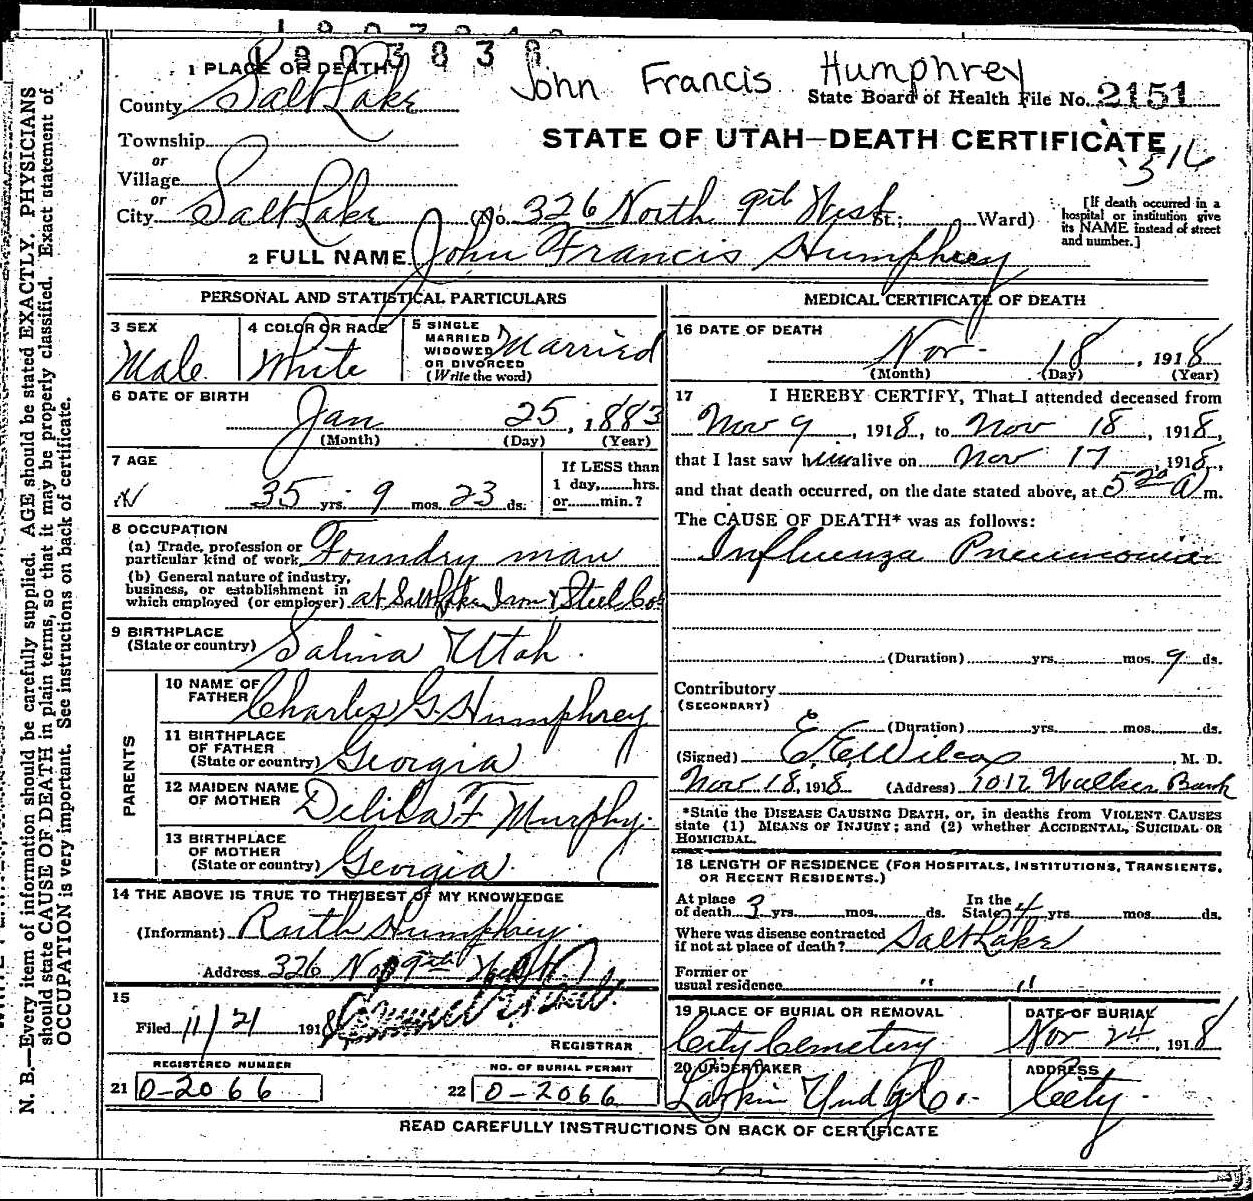 1803838
John Francis Humphrey
1 PLACE OF DEATH
County Salt Lake
State Board of Health File No. 2151
Township
or
Village
or
City Salt Lake
STATE OF UTAH—DEATH CERTIFICATE
316
(No. 326 North 9th West St.; Ward)
[If death occurred in a
hospital or institution give
its NAME instead of street
and number.]
2 FULL NAME John Francis Humphrey
PERSONAL AND STATISTICAL PARTICULARS
3 SEX
Male
4 COLOR OR RACE
White
5 SINGLE
MARRIED
WIDOWED
OR DIVORCED
(Write the word)
Married
6 DATE OF BIRTH
Jan 25, 1883
(Month) (Day) (Year)
7 AGE
35 yrs. 9 mos. 23 ds.
If LESS than
1 day, hrs.
or min.?
8 OCCUPATION
(a) Trade, profession or
particular kind of work Foundry man
(b) General nature of industry,
business, or establishment in
which employed (or employer) at Salt Lake Iron & Steel Co.
9 BIRTHPLACE
(State or country) Salina Utah.
PARENTS
10 NAME OF
FATHER Charles G. Humphrey
11 BIRTHPLACE
OF FATHER
(State or country) Georgia
12 MAIDEN NAME
OF MOTHER Delila F Murphy.
13 BIRTHPLACE
OF MOTHER
(State or country) Georgia.
14 THE ABOVE IS TRUE TO THE BEST OF MY KNOWLEDGE
(Informant) Ruth Humphrey.
Address 326 No 9th West
15
Filed 11/21 1918
REGISTRAR
REGISTERED NUMBER
21 0-2066
NO. OF BURIAL PERMIT
22 0-2066
MEDICAL CERTIFICATE OF DEATH
16 DATE OF DEATH
Nov. 18, 1918
(Month) (Day) (Year)
17 I HEREBY CERTIFY, That I attended deceased from
Nov 9, 1918, to Nov 18, 1918,
that I last saw him alive on Nov 17, 1918,
and that death occurred, on the date stated above, at 5 20 A m.
The CAUSE OF DEATH* was as follows:
Influenza Pneumonia
(Duration) yrs. mos. 9 ds.
Contributory
(SECONDARY)
(Duration) yrs. mos. ds.
(Signed) E. E. Wilcox, M. D.
Nov 18, 1918 (Address) 1012 Walker Bank
*State the DISEASE CAUSING DEATH, or, in deaths from VIOLENT CAUSES
state (1) MEANS OF INJURY; and (2) whether ACCIDENTAL, SUICIDAL OR
HOMICIDAL.
18 LENGTH OF RESIDENCE (FOR HOSPITALS, INSTITUTIONS, TRANSIENTS,
OR RECENT RESIDENTS.)
At place
of death 3 yrs. mos. ds.
In the
State yrs. mos. ds.
Where was disease contracted
if not at place of death? Salt Lake
Former or
usual residence " "
19 PLACE OF BURIAL OR REMOVAL
City Cemetery
DATE OF BURIAL
Nov 24, 1918
20 UNDERTAKER
Larkin Und'g Co.
ADDRESS
City.
READ CAREFULLY INSTRUCTIONS ON BACK OF CERTIFICATE
N. B.—Every item of information should be carefully supplied. AGE should be stated EXACTLY. PHYSICIANS
should state CAUSE OF DEATH in plain terms, so that it may be properly classified. Exact statement of
OCCUPATION is very important. See instructions on back of certificate.